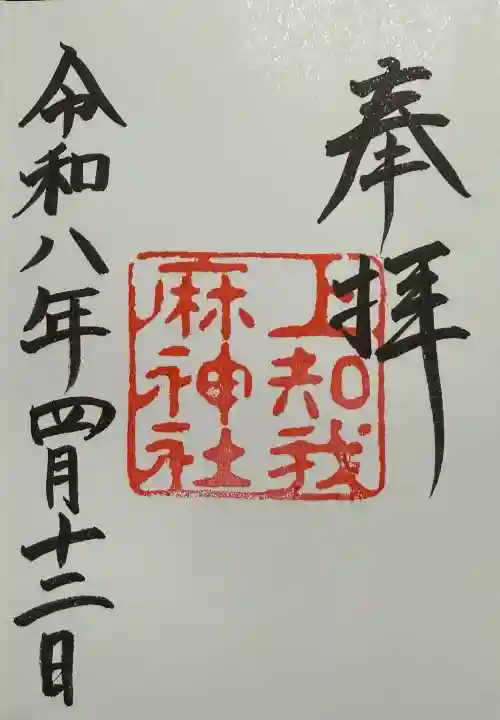 奉拝
上知我
麻神社
令和八年四月十二日